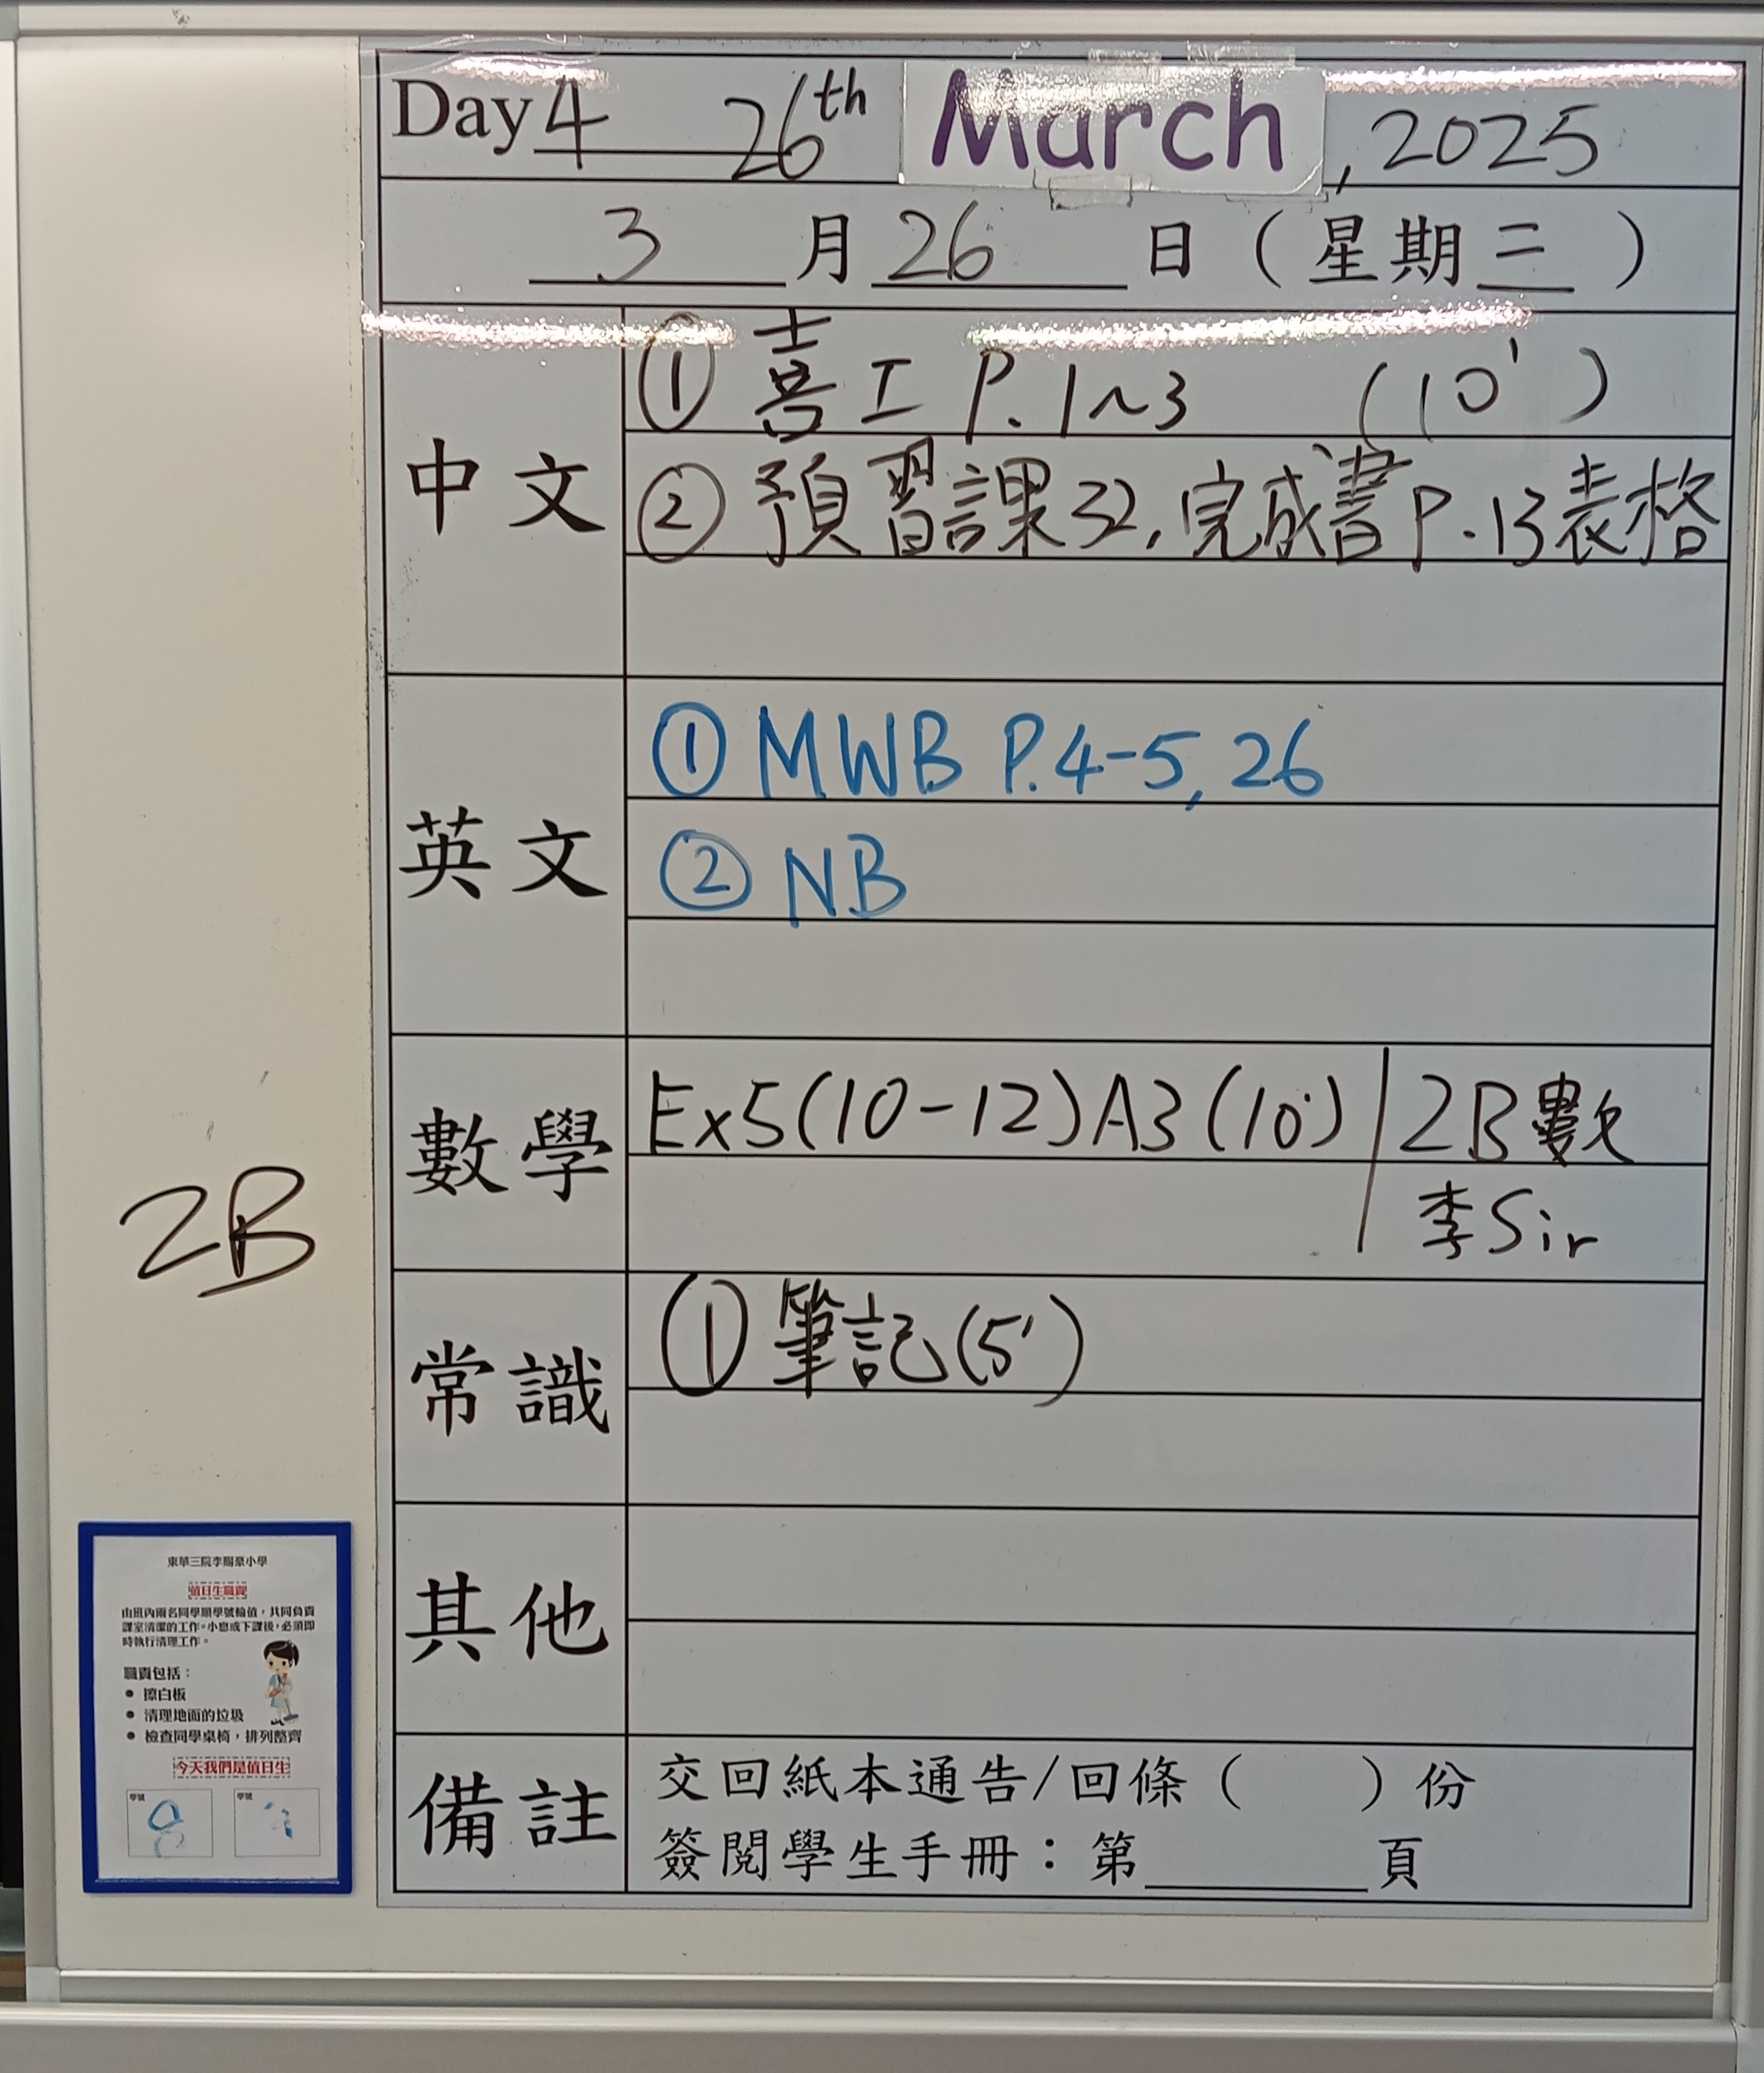 Day 4 26th March, 2025
3 月 26 日 ( 星期三 )
中文
① 喜工 P. 1~3 (10')
② 預習課32, 完成書P.13表格
英文
① MWB P.4-5, 26
② NB
數學
Ex5(10-12)A3(10') 2B數
李Sir
2B
常識
① 筆記(5')
其他
備註
交回紙本通告/回條 ( ) 份
簽閱學生手冊：第____頁
東華三院李賜豪小學
值日生職責
由班內兩名同學順學號輪值，共同負責
課室清潔的工作。小息或下課後，必須即
時執行清理工作。
職責包括：
• 擦白板
• 清理地面的垃圾
• 檢查同學桌椅，排列整齊
今天我們是值日生
學號 學號
8